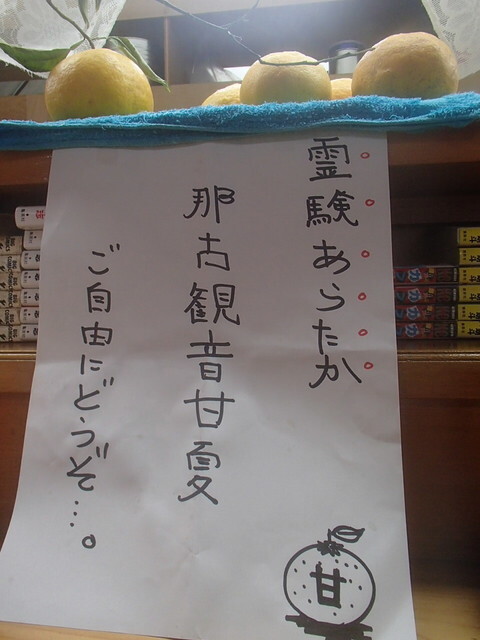 霊験あらたか
那古観音甘夏
ご自由にどうぞ…。
甘